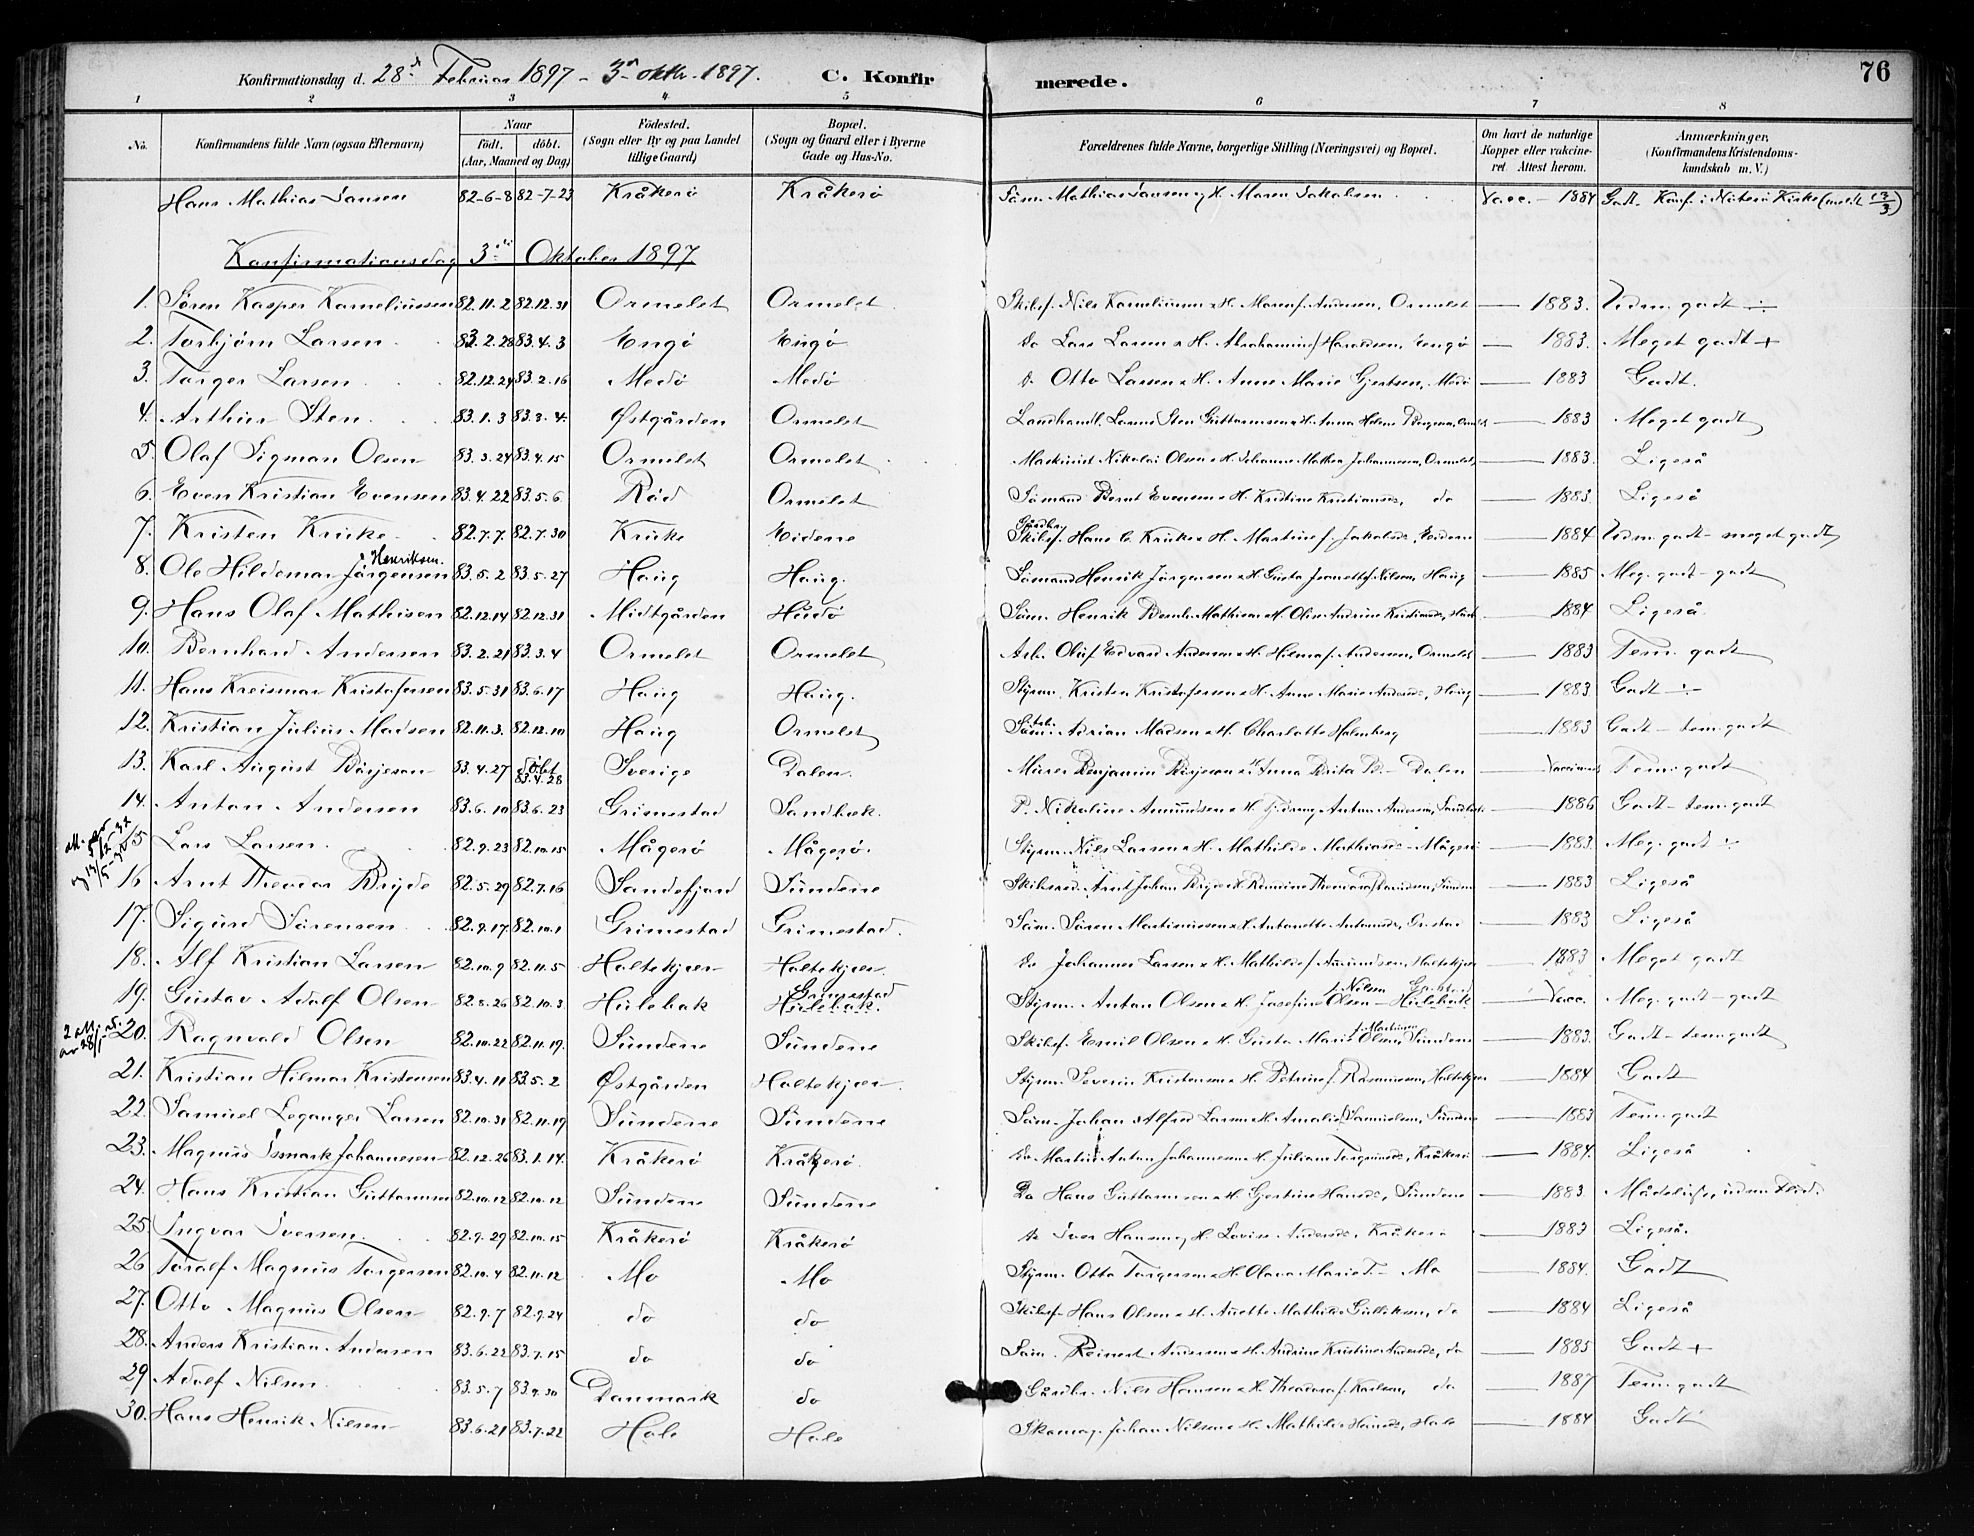 Konfirmationsdag d. 28de Februar 1897 - 3die oktbr. 1897. C. Konfirmerede. 76
1 2 3 4 5 6 7 8
No. Konfirmandens fulde Navn (ogsaa Efternavn) Naar født. døbt. (Aar, Maaned og Dag) Fødested. (Sogn eller By og paa Landet tillige Gaard) Bopæl. (Sogn og Gaard eller i Byerne Gade og Hus-No. Forældrenes fulde Navne, borgerlige Stilling (Næringsvei) og Bopæl. Om havt de naturlige Kopper eller vakcineret. Attest herom. Anmærkninger. (Konfirmandens Kristendomskundskab m. V.)
Hans Mathias Jansen 82-6-8 82-7-23 Kråkerö Kråkerö Söm. Mathias Jansen og H. Maren Jakobsen Vacc. - 1884 Godt. Konf. i Nöterö Kirke
Konfirmationsdag 3die Oktober 1897
1. Sören Kasper Korneliussen 82.11.2 82.12.31 Ormelet Ormelet Skibsf. Nils Korneliussen & H. Maren f. Andersen, Ormelet — 1883. Udm. godt
2. Torbjörn Larsen 83.2.28 83.4.3 Engö Engö do Lars Larsen & H. Abrahamine Haraldsen, Engö — 1883. Meget godt +
3. Torger Larsen 82.12.24 83.2.16 Medö Medö d. Otto Larsen & H. Anne Marie Gjertsen, Medö — 1883 Godt.
4. Arthur Sten 83.1.3 83.3.4. Østgården Ormelet Landhandl. Laurus Sten Guttormsen & H. Anna Helene — 1883 Meget godt
5. Olaf Sigman Olsen 83.3.24 83.4.15 Ormelet Ormelet Maskinist Nikolai Olsen & H. Johanne Mathea Johannesen, Ormelet — 1883. Ligeså
6. Even Kristian Evensen 83.4.22 83.5.6 Röd Ormelet Sömand Bernt Evensen & H. Kristine Kristiansd., do — 1883. Ligeså
7. Kristen Kruke 82.7.7 82.7.30 Kruke Eidene Gårdbr. Skibsf. Hans C. Kruke & H. Martine f. Jakobsd., Eidene — 1884 Udm. godt - meget godt
8. Ole Hildemar Jörgensen Henriksen. 83.5.2 83.5.27 Haug Haug. Sömand Henrik Jörgensen & H. Gusta Jeanette f. Nilsen, Haug — 1885 Meg. godt - godt
9. Hans Olaf Mathisen 82.12.14 82.12.31 Midtgården Hudö Söm. Henrik Bernh. Mathisen & H. Oline Andrine Kristiansd., — 1884 Ligeså.
10. Bernhard Andersen 83.2.21 83.3.4 Ormelet Ormelet Arb. Oluf Edvard Andersen & H. Hilma f. Andersen, Ormelet — 1883 Tem. godt
11. Hans Kreismar Kristofersen 83.5.31 83.6.17 Haug Haug. Styrm. Kristen Kristofersen & H. Anne Marie Andersd., Haug — 1883 Godt
12. Kristian Julius Madsen 82.11.3. 82.12.10 Haug Ormelet Söm. Adrian Madsen & H. Charlotte Holmberg 1883 Godt - tem. godt
13. Karl August Börjeson 83.4.27 döbt 83.4.28 Sverige Dalen. Murer Benjamin Börjeson & H. Anna Brita B. - Dalen Tem. godt
14. Anton Andersen 83.6.10 83.6.23 Grimestad Sandbæk. P. Nikoline Amundsen & Anton Andersen, — 1886 Godt - tem. godt
15 Lars Larsen. 82.9.23 82.10.15 Mågerö Mågerö. Styrm. Nils Larsen & H. Mathilde Mathiasd. - Mågerö — 1883. Meg. godt
16 Arnt Theodor Bryde 82.5.29 82.7.16 Sandefjord Sundene Skibsred. Arnt Johan Bryde & H. — 1883 Ligeså
17. Sigurd Sörensen 82.9.17 82.10.1 Grimestad Grimestad. Söm. Sören Martinussen & H. Antonette Antonsd., — 1883 Ligeså
18. Alf Kristian Larsen 82.10.9 82.11.5 Holtekjær Holtekjær. do Johannes Larsen & H. Mathilde f. Amundsen, Holtekjær — 1883 Meget godt
19. Gustav Adolf Olsen 82.8.26 82.10.3 Hulebak Grimestad Hulebak. Styrm. Anton Olsen & H. Josefine Olsen - Hulebak f. Nilsen — Vacc. Meg. godt - godt
20. Ragnvald Olsen 82.10.22 82.11.19. Sundene Sundene Skibsf. Emil Olsen & H. Gusta Marie Olsen, Sundene — 1883. Godt - tem. godt
21. Kristian Hilmar Kristensen 83.4.11 83.5.2 Østgården Holtekjær. Styrm. Severin Kristensen & H. Petrine f. Rasmussen, Holtekjær — 1884 Godt
22. Samuel Leganger Larsen 82.10.31 82.11.19 Sundene Sundene Söm. Johan Alfred Larsen & H. Amalie Samuelsen, Sundene — 1883 Tem. godt
23. Magnus Ismark Johannesen 82.12.26 83.1.14. Kråkerö Kråkerö. do Martin Anton Johannesen & H. Juliane Torgrimsd., Kråkerö — 1884. Ligeså
24. Hans Kristian Guttormsen 82.10.12 82.10.12 Sundene Sundene Do Hans Guttormsen & H. Gjertine Hansd., Sundene — 1883. Mådelig, uden Flid.
25 Ingvar Iversen. 82.9.29 82.10.15 Kråkerö Kråkerö do Iver Hansen og H. Lovise Andersd., Kråkerö — 1883 Ligeså.
26 Toralf Magnus Torgersen 82.10.4 82.11.12 Mo Mo Styrm. Otto Torgersen & H. Olava Marie T. - Mo — 1884. Godt
27. Otto Magnus Olsen 82.9.7 82.9.24 do do Skibsf. Hans Olsen & H. Anette Mathilde Gulliksen, do — 1884 Ligeså
28. Anders Kristian Andersen 83.6.22 83.7.15 do do Söm. Reinert Andersen & H. Andrine Kristine Andersd., do — 1885 Godt +
29 Adolf Nilsen 83.5.7 83.9.30 Danmark do Gårdbr. Nils Hansen & H. Theodora f. Karlsen, do — 1887 Tem. godt
30. Hans Henrik Nilsen 83.6.21 83.7.22 Hole Hole Skomag. Johan Nilsen & H. Mathilde Hansd., Hole — 1884 Godt